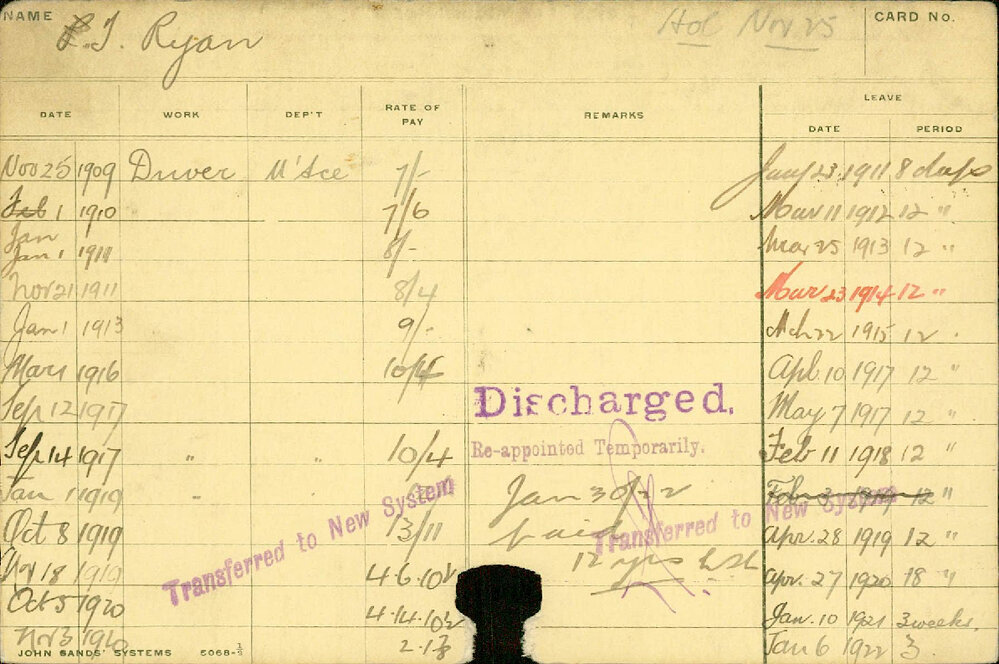 NAME
R.J. Ryan
Hol Nov 25
CARD No.
DATE WORK DEP'T RATE OF PAY REMARKS LEAVE
DATE PERIOD
Nov 25 1909 Driver M'tce 7/- Jany 23 1911 8 days
Feb 1 1910 7/6 Mar 11 1912 12 "
Jan
Jan 1 1911 8/- Mar 25 1913 12 "
Nov 21 1911 8/4 Mar 23 1914 12 "
Jan 1 1913 9/- Mch 22 1915 12 "
Mar 1 1916 10/4 Apl 10 1917 12 "
Sep 12 1917 Discharged. May 7 1917 12 "
Sep 14 1917 " " 10/4 Re-appointed Temporarily. Feb 11 1918 12 "
Jan 1 1919 " Jan 30/22 Feb 3 1919 12 "
Transferred to New System
Oct 8 1919 13/11 paid Apr. 28 1919 12 "
Transferred to New System
Nov 18 1919 4.6.10½ 12 yrs Apr. 27 1920 18 "
Oct 5 1920 4.14.10½ Jan. 10 1921 3 weeks.
Nov 3 1920 Jan 6 1922 3
JOHN SANDS' SYSTEMS 5068-